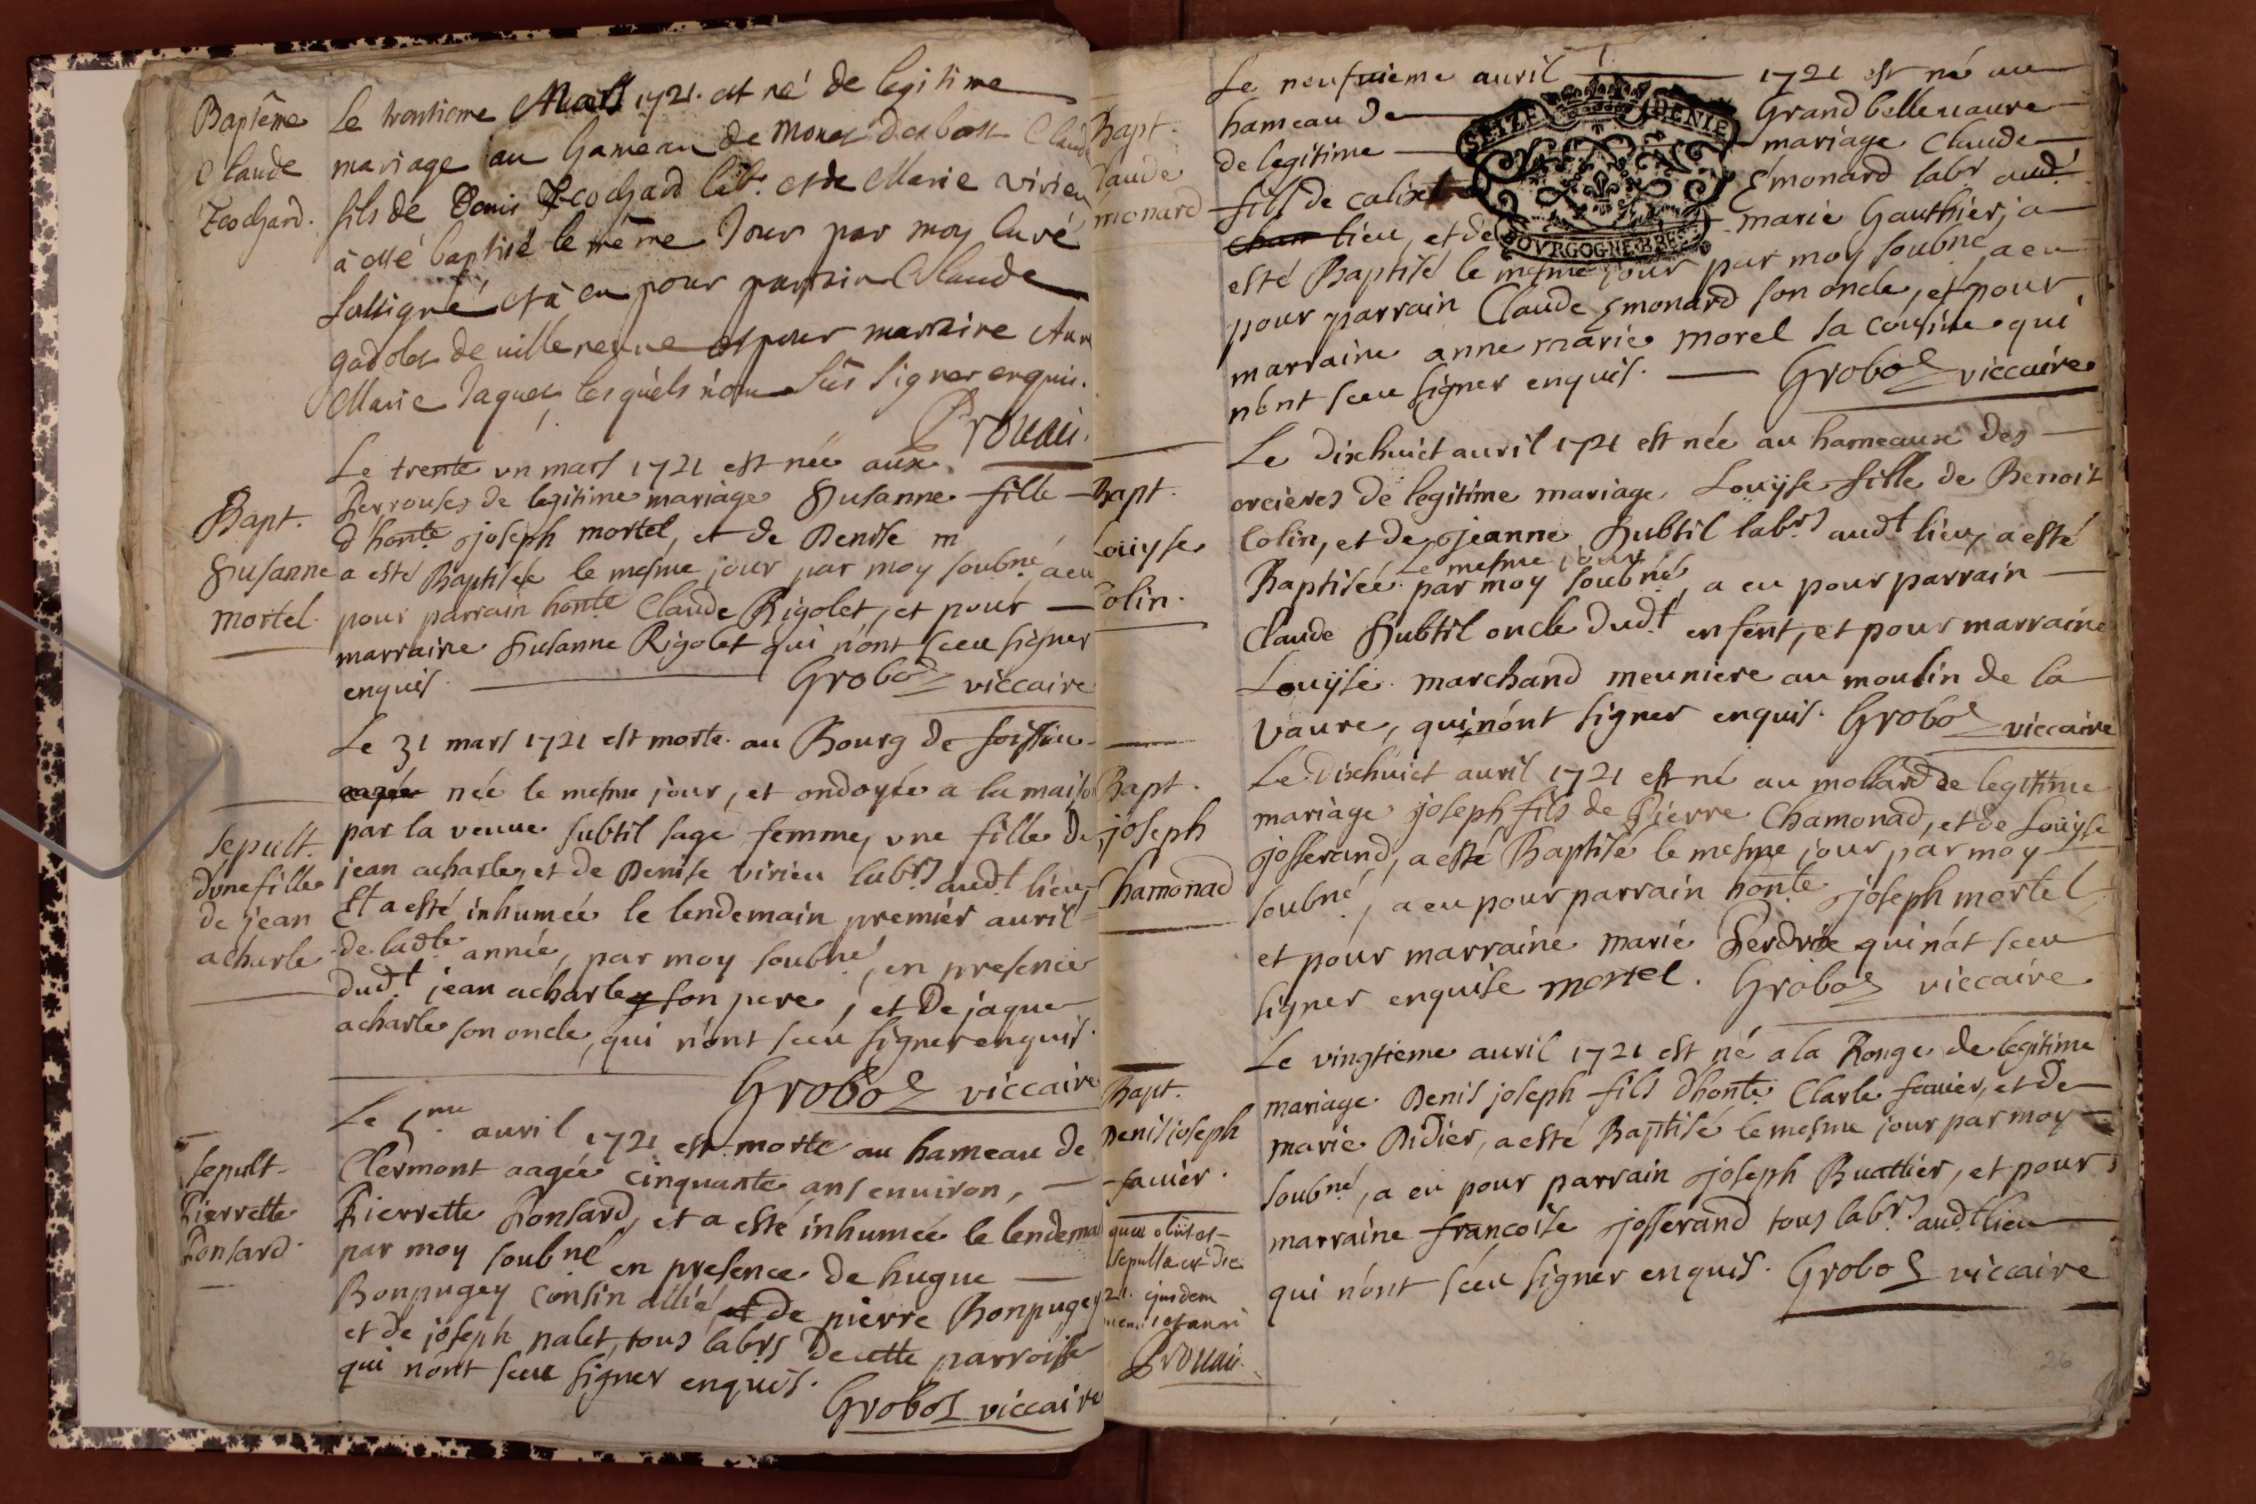 Baptême
Claude
Le trentieme Mars 1721. est né de legitime
mariage au hameau de Claude
fils de Denis lab.r et de Marie Virieu
à esté baptisé le même Jour par moy Curé
soussigné et à eu pour parrain Claude
de villeneuve et pour marraine
Marie Jaques, lesquels n'ont sçus signer enquis.
Bapt.
Susanne
mortel.
Le trente un mars 1721 est née aux
Perrouses de legitime mariage Susanne fille
d'honte joseph mortel, et de Denise m
a esté Baptisée le mesme jour par moy soubné, a eu
pour parrain honte Claude Rigolet, et pour
marraine Susanne Rigolet qui nont sceu signer
enquis. Grobos viccaire
Sepult.
dune fille
de jean
acharle
Le 31 mars 1721 est morte au Bourg de
aagée née le mesme jour, et ondoyée a la maison
par la veuve subtil sage femme, une fille de
jean acharle, et de Denise Virieu labrs audt lieu
Et a esté inhumée le lendemain premier auril
de ladte année, par moy soubné, en presence
dudt jean acharle son pere, et de jaque
acharle son oncle, qui n'ont sceu signer enquis.
Grobos viccaire
Sepult.
Pierrette
Ponsard.
Le 5me auril 1721 est morte au hameau de
Clermont aagée cinquante ans environ,
Pierrette Ponsard, et a esté inhumée le lendemain
par moy soubné en presence de hugue
Bonpugey cousin allié, et de pierre Bonpugey
et de joseph palet, tous labrs de cette parroisse
qui nont sceu signer enquis.
Grobos viccaire
Bapt.
Claude
Emonard
Le neufuieme auril 1721 est né au
hameau de Grand bellevaure
de legitime mariage Claude
fils de Emonard labr audt
lieu, et de marie Gauthier, a
esté Baptisé le mesme jour par moy soubné, a eu
pour parrain Claude Emonard son oncle, et pour
marraine anne marie morel sa cousine qui
nont sceu signer enquis. Grobos viccaire
SEIZE DENIE
BOVRGOGNE BRES
Bapt.
Louyse
Colin.
Le dixhuict auril 1721 est née au hameaux des
orcieres de legitime mariage, Louyse fille de Benoit
Colin, et de jeanne Subtil labrs audt lieu, a esté
le mesme jour
Baptisée par moy soubné, a eu pour parrain
Claude Subtil oncle dudt enfent, et pour marraine
Louyse marchand meuniere au moulin de la
Vaure, qui nont signer enquis. Grobos viccaire
Bapt.
joseph
Chamonad
Le dixhuict auril 1721 est né au mollard de legitime
mariage joseph fils de Pierre Chamonad, et de Louyse
josserand, a esté Baptisé le mesme jour par moy
soubné, a eu pour parrain honte joseph mortel
et pour marraine marie Perdrix qui nat sceu
signer enquise mortel. Grobos viccaire
Bapt.
Denis joseph
fauier.
Le vingtieme auril 1721 est né a la Ronge de legitime
mariage Denis joseph fils dhonte Clarle fauier, et de
marie Didier, a esté Baptisé le mesme jour par moy
soubné, a eu pour parrain joseph Buattier, et pour
marraine francoise josserand tous labrs audt lieu
qui n'ont sceu signer enquis. Grobos viccaire
sepulta est die
24. ejusdem
26